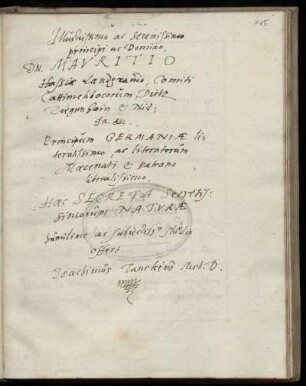 Illustrissimo ac Serenissimo
principi ac Domino,
DN. MAVRITIO
Hassiæ Landgravio, Comiti
Cattimelibocorum, Dietz
Ziegenhain & Nid:
da &c.
Principum GERMANIÆ li:
teratissimo, ac literatorum
Mæcenati & patrono
liberalissimo.
Hæc SECRETA Secretis:
simorum NATVRÆ
humilime ac subiectiss: studio
offert
Joachimus Tanckius Med: D.